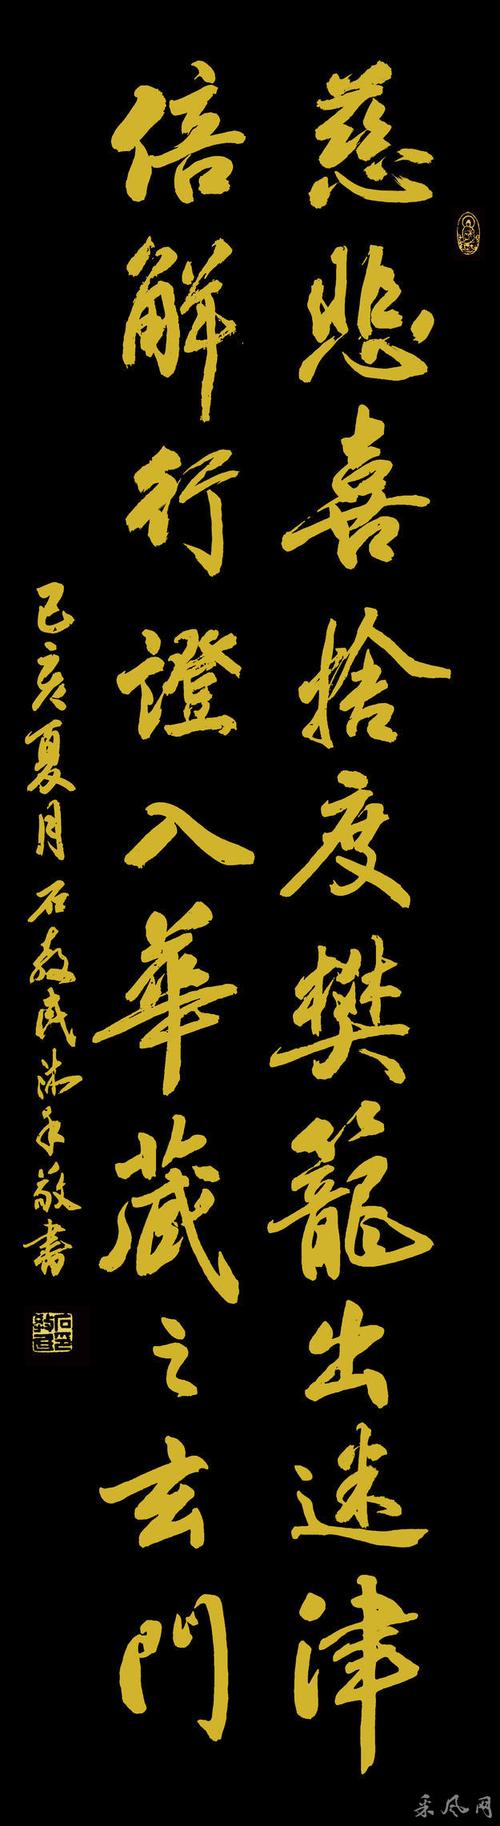 慈悲喜捨度樊籠出迷津
信解行證入華藏之玄門
己亥夏月石教民沐手敬書
采风网